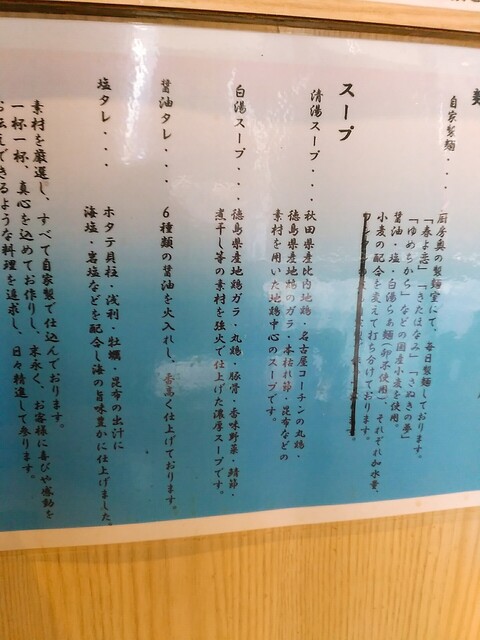 麺
自家製麺・・・
厨房奥の製麺室にて、毎日製麺しております。
「春よ恋」「きたほなみ」「さぬきの夢」
「ゆめちから」などの国産小麦を使用。
醤油・塩・白湯らぁ麺(卵不使用)、それぞれ加水量、
小麦の配合を変えて打ち分けております。
スープ
清湯スープ・・・
秋田県産比内地鶏・名古屋コーチンの丸鶏・
徳島県産地鶏のガラ・本枯れ節・昆布などの
素材を用いた地鶏中心のスープです。
白湯スープ・・・
徳島県産地鶏ガラ・丸鶏・豚骨・香味野菜・鯖節・
煮干し等の素材を強火で仕上げた濃厚スープです。
醤油タレ・・・
6種類の醤油を火入れし、香高く仕上げております。
塩タレ・・・
ホタテ貝柱・浅利・牡蠣・昆布の出汁に
海塩・岩塩などを配合し海の旨味豊かに仕上げました。
素材を厳選し、すべて自家製で仕込んでおります。
一杯一杯、真心を込めてお作りし、末永く、お客様に喜びや感動を
お伝えできるような料理を追求し、日々精進して参ります。